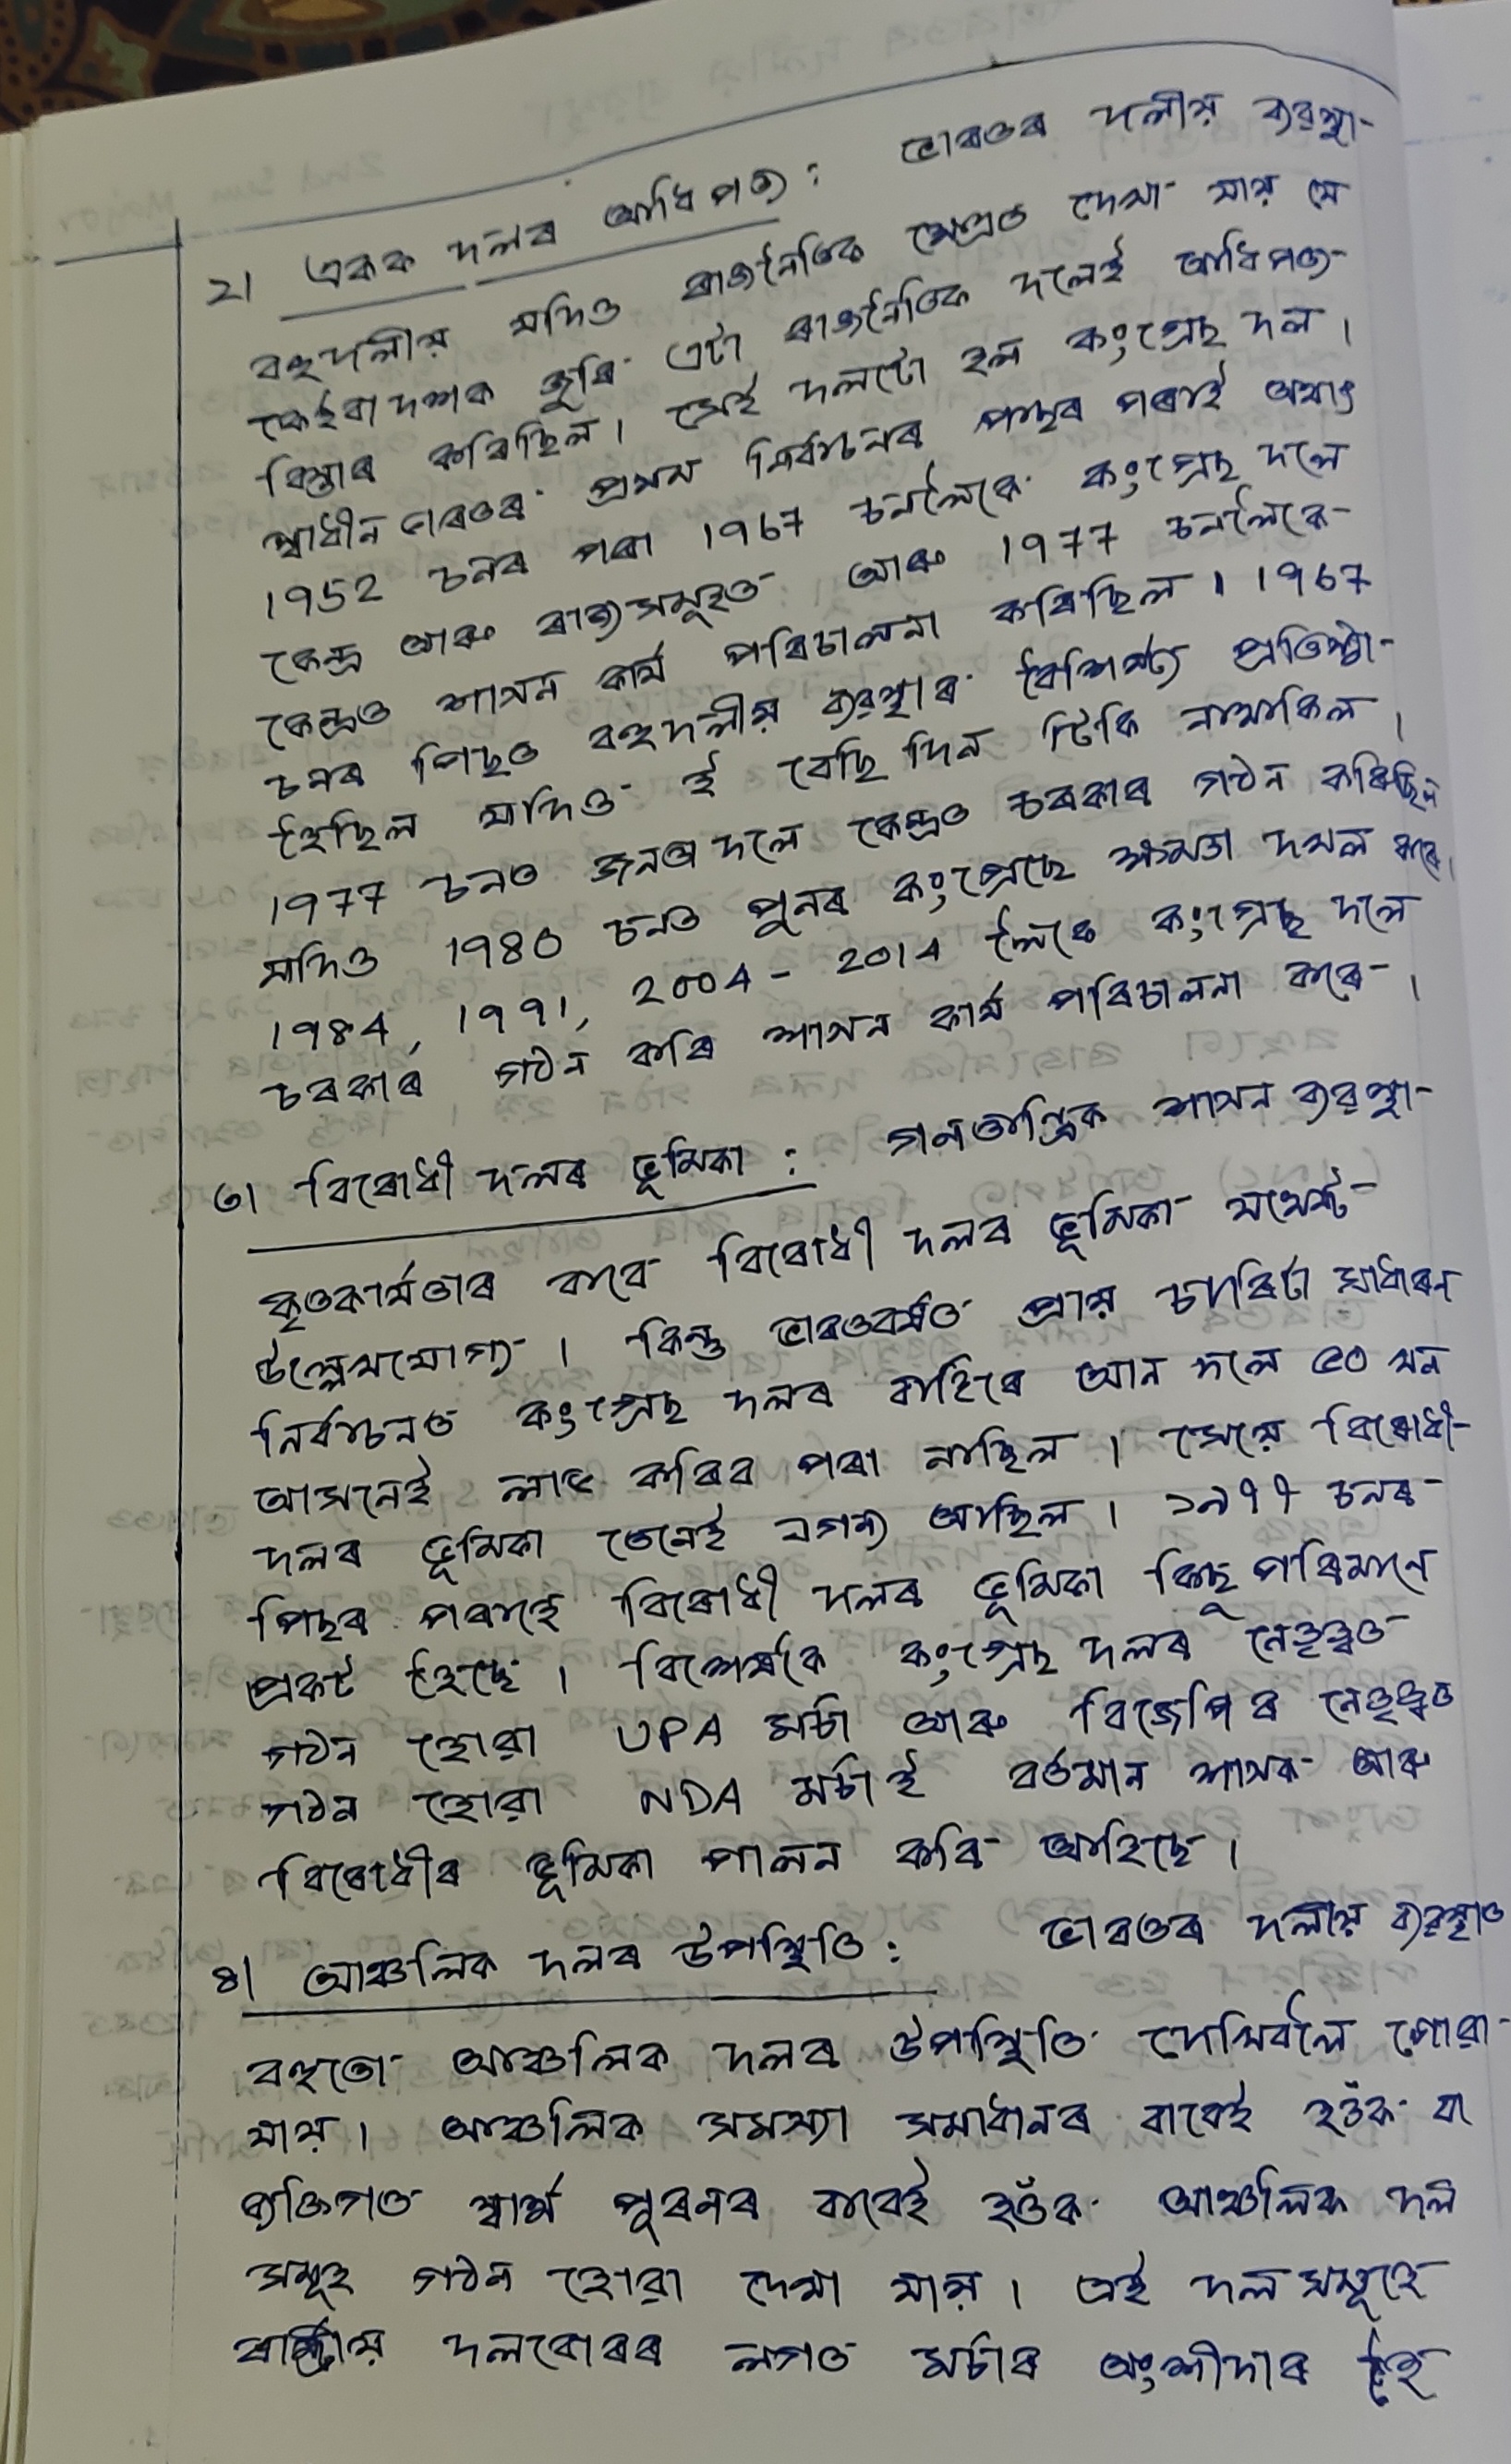 ২। একক দলৰ আধিপত্য : ভাৰতৰ দলীয় ব্যৱস্থা-
বহুদলীয় যদিও ৰাজনৈতিক ক্ষেত্ৰত দেখা যায় যে
কেইবা দশক জুৰি এটা ৰাজনৈতিক দলেই আধিপত্য-
বিস্তাৰ কৰিছিল। সেই দলটো হল কংগ্ৰেছ দল।
স্বাধীন ভাৰতৰ প্ৰথম নিৰ্বাচনৰ পাছৰ পৰাই অৰ্থাৎ
1952 চনৰ পৰা 1967 চনলৈকে কংগ্ৰেছ দলে
কেন্দ্ৰ আৰু ৰাজ্যসমূহত আৰু 1977 চনলৈকে-
কেন্দ্ৰত শাসন কাৰ্য পৰিচালনা কৰিছিল। 1967
চনৰ পিছত বহুদলীয় ব্যৱস্থাৰ বৈশিষ্ট্য প্ৰতিষ্ঠা-
হৈছিল যদিও ই বেছি দিন টিকি নাথাকিল।
1977 চনত জনতা দলে কেন্দ্ৰত চৰকাৰ গঠন কৰিছিল
যদিও 1980 চনত পুনৰ কংগ্ৰেছে ক্ষমতা দখল কৰে।
1984, 1991, 2004 - 2014 লৈকে কংগ্ৰেছ দলে
চৰকাৰ গঠন কৰি শাসন কাৰ্য পৰিচালনা কৰে।
৩। বিৰোধী দলৰ ভূমিকা : গনতান্ত্ৰিক শাসন ব্যৱস্থা-
কৃতকাৰ্যতাৰ বাবে বিৰোধী দলৰ ভূমিকা যথেষ্ট
উল্লেখযোগ্য। কিন্তু ভাৰতবৰ্ষত প্ৰায় চাৰিটা সাধাৰন
নিৰ্বাচনত কংগ্ৰেছ দলৰ বাহিৰে আন দলে ৫০ খন
আসনেই লাভ কৰিব পৰা নাছিল। সেয়ে বিৰোধী-
দলৰ ভূমিকা তেনেই নগন্য আছিল। ১৯৭৭ চনৰ-
পিছৰ পৰাহে বিৰোধী দলৰ ভূমিকা কিছু পৰিমানে
প্ৰকট হৈছে। বিশেষকৈ কংগ্ৰেছ দলৰ নেতৃত্বত
গঠন হোৱা UPA মৰ্চা আৰু বিজেপিৰ নেতৃত্বত
গঠন হোৱা NDA মৰ্চাই বৰ্তমান শাসক আৰু
বিৰোধীৰ ভূমিকা পালন কৰি আহিছে।
৪। আঞ্চলিক দলৰ উপস্থিতি : ভাৰতৰ দলীয় ব্যৱস্থাত
বহুতো আঞ্চলিক দলৰ উপস্থিতি দেখিবলৈ পোৱা-
যায়। আঞ্চলিক সমস্যা সমাধানৰ বাবেই হওঁক বা
ব্যক্তিগত স্বাৰ্থ পুৰনৰ বাবেই হওঁক আঞ্চলিক দল
সমূহ গঠন হোৱা দেখা যায়। এই দল সমূহে
ৰাষ্ট্ৰীয় দলবোৰৰ লগত মৰ্চাৰ অংশীদাৰ হৈ